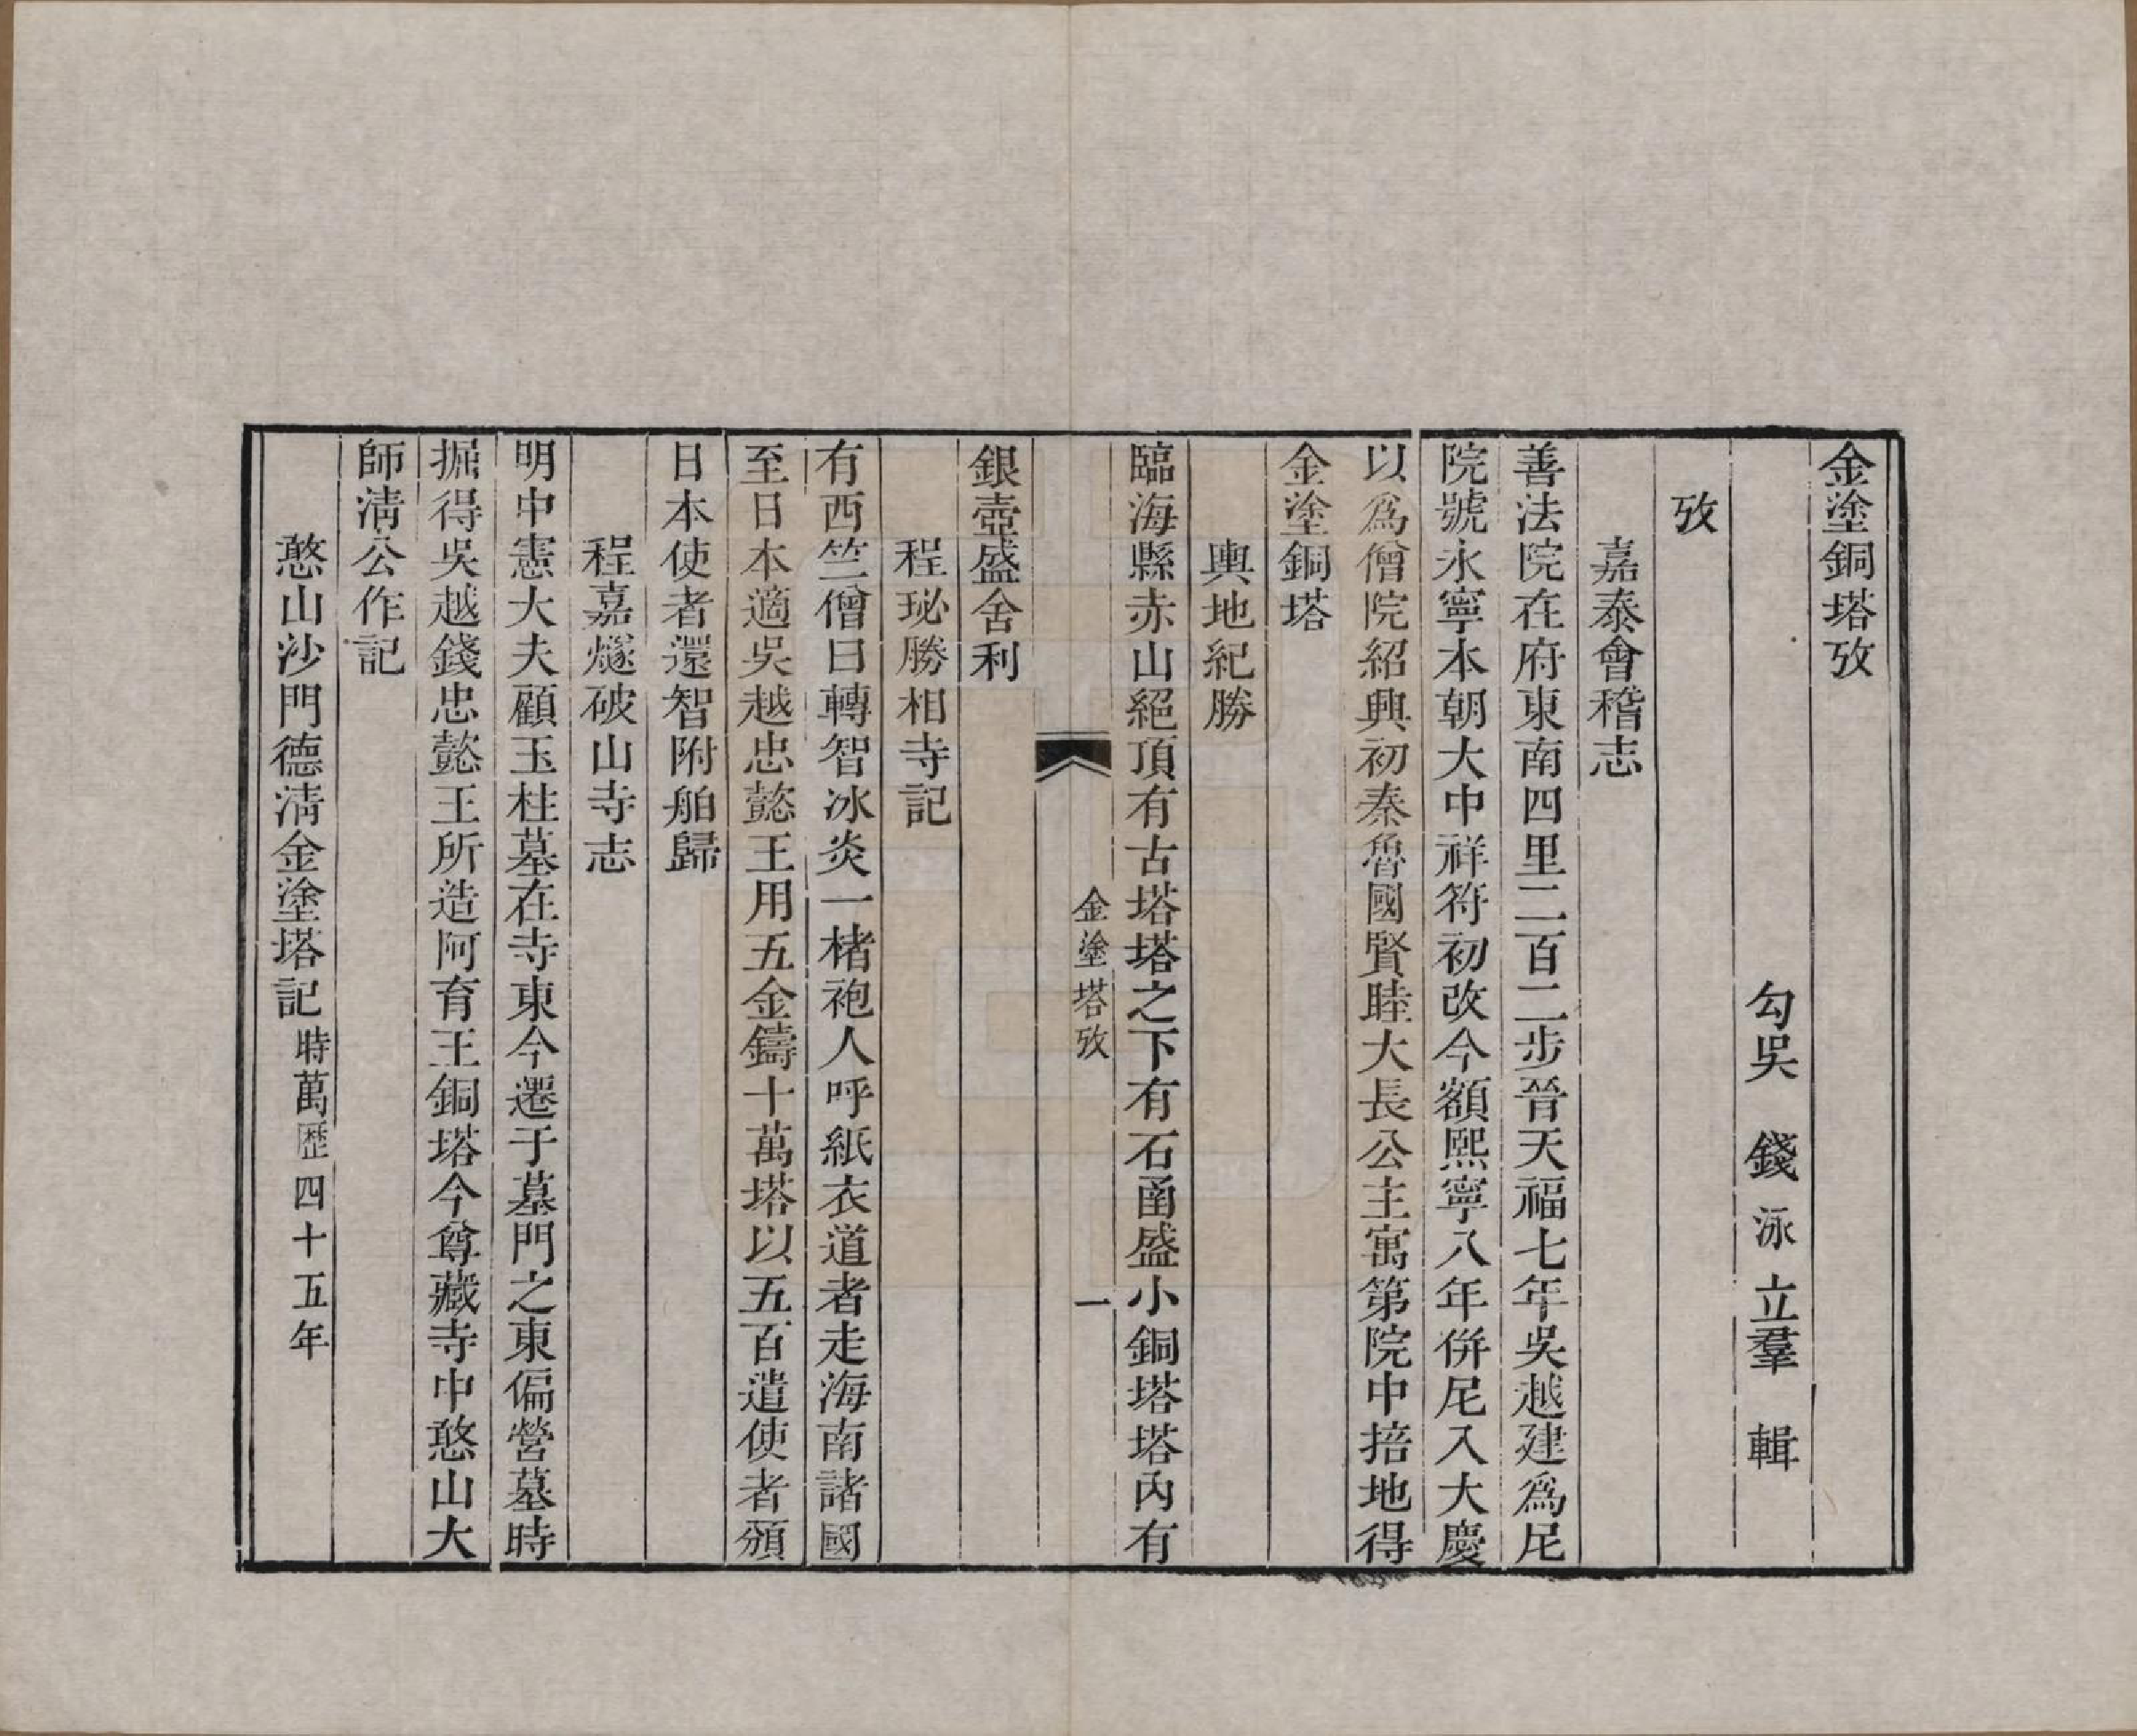 金塗銅塔攷
勾吳　錢泳立羣　輯
攷
嘉泰會稽志
善法院在府東南四里二百二步晉天福七年吳越建爲尼
院號永寧本朝大中祥符初改今額熙寧八年併尼入大慶
以爲僧院紹興初秦魯國賢睦大長公主寓第院中掊地得
金塗銅塔
輿地紀勝
臨海縣赤山絕頂有古塔塔之下有石甬盛小銅塔塔內有
金塗塔攷　一
銀壺盛舍利
程珌勝相寺記
有西竺僧曰轉智冰炎一楮袍人呼紙衣道者走海南諸國
至日本適吳越忠懿王用五金鑄十萬塔以五百遣使者頒
日本使者還智附舶歸
程嘉燧破山寺志
明中憲大夫顧玉柱墓在寺東今遷于墓門之東偏營墓時
掘得吳越錢忠懿王所造阿育王銅塔今尊藏寺中憨山大
師淸公作記
憨山沙門德淸金塗塔記時萬歷四十五年